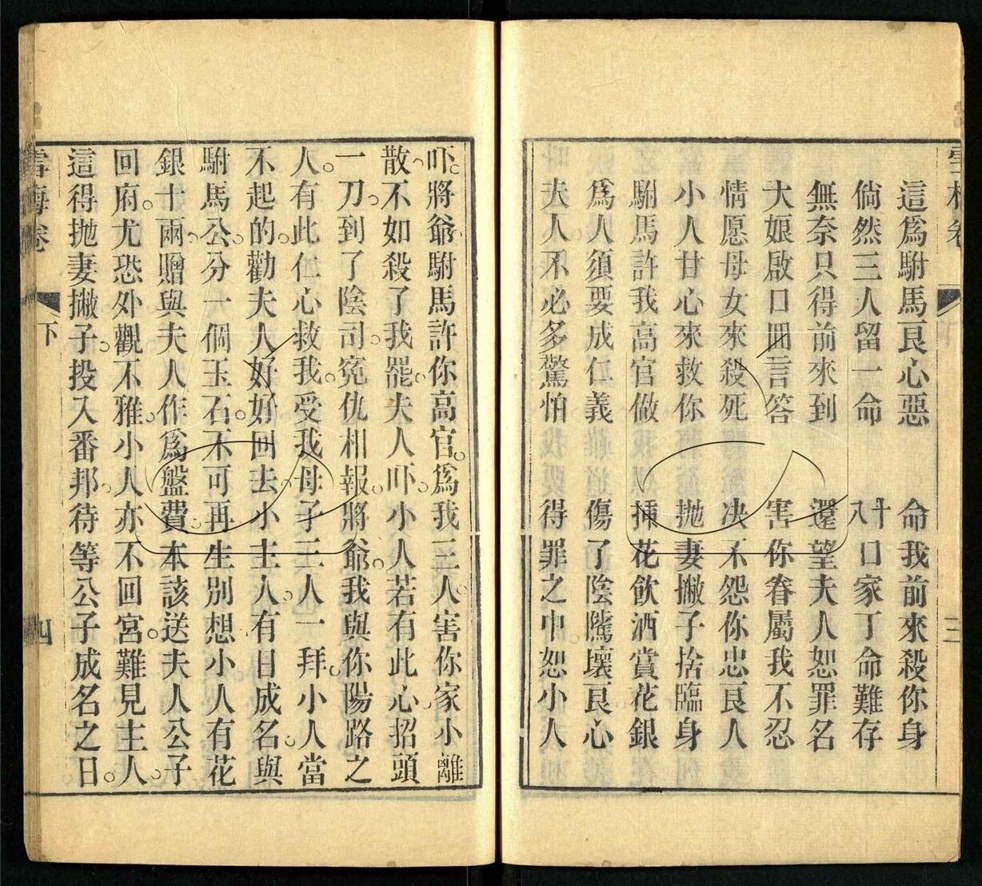 這爲駙馬良心惡　命我前來殺你身
倘然三人留一命　十八口家丁命難存
無奈只得前來到　還望夫人恕罪名
大娘啟口回言答　害你眷屬我不忍
情愿母女來殺死　决不怨你忠良人
小人甘心來救你　抛妻撇子捨臨身
駙馬許我高官做　揷花飲酒賞花銀
爲人須要成仁義　傷了陰隲壞良心
夫人不必多驚怕　得罪之中恕小人
三
吓將爺駙馬許你高官。爲我三人害你家小離
散不如殺了我罷夫人吓。小人若有此心招頭
一刀。到了陰司。寃仇相報。將爺。我與你陽路之
人。有此仁心救我。受我母子三人一拜。小人當
不起的。勸夫人好好回去。小主人。有日成名。與
駙馬公。分一個玉石。不可再生別想。小人有花
銀十兩。贈與夫人作爲盤費。本該送夫人公子
回府。尤恐外觀不雅。小人亦不回宮。難見主人。
這得抛妻撇子。投入番邦。待等公子成名之日。
雪梅卷
下
四